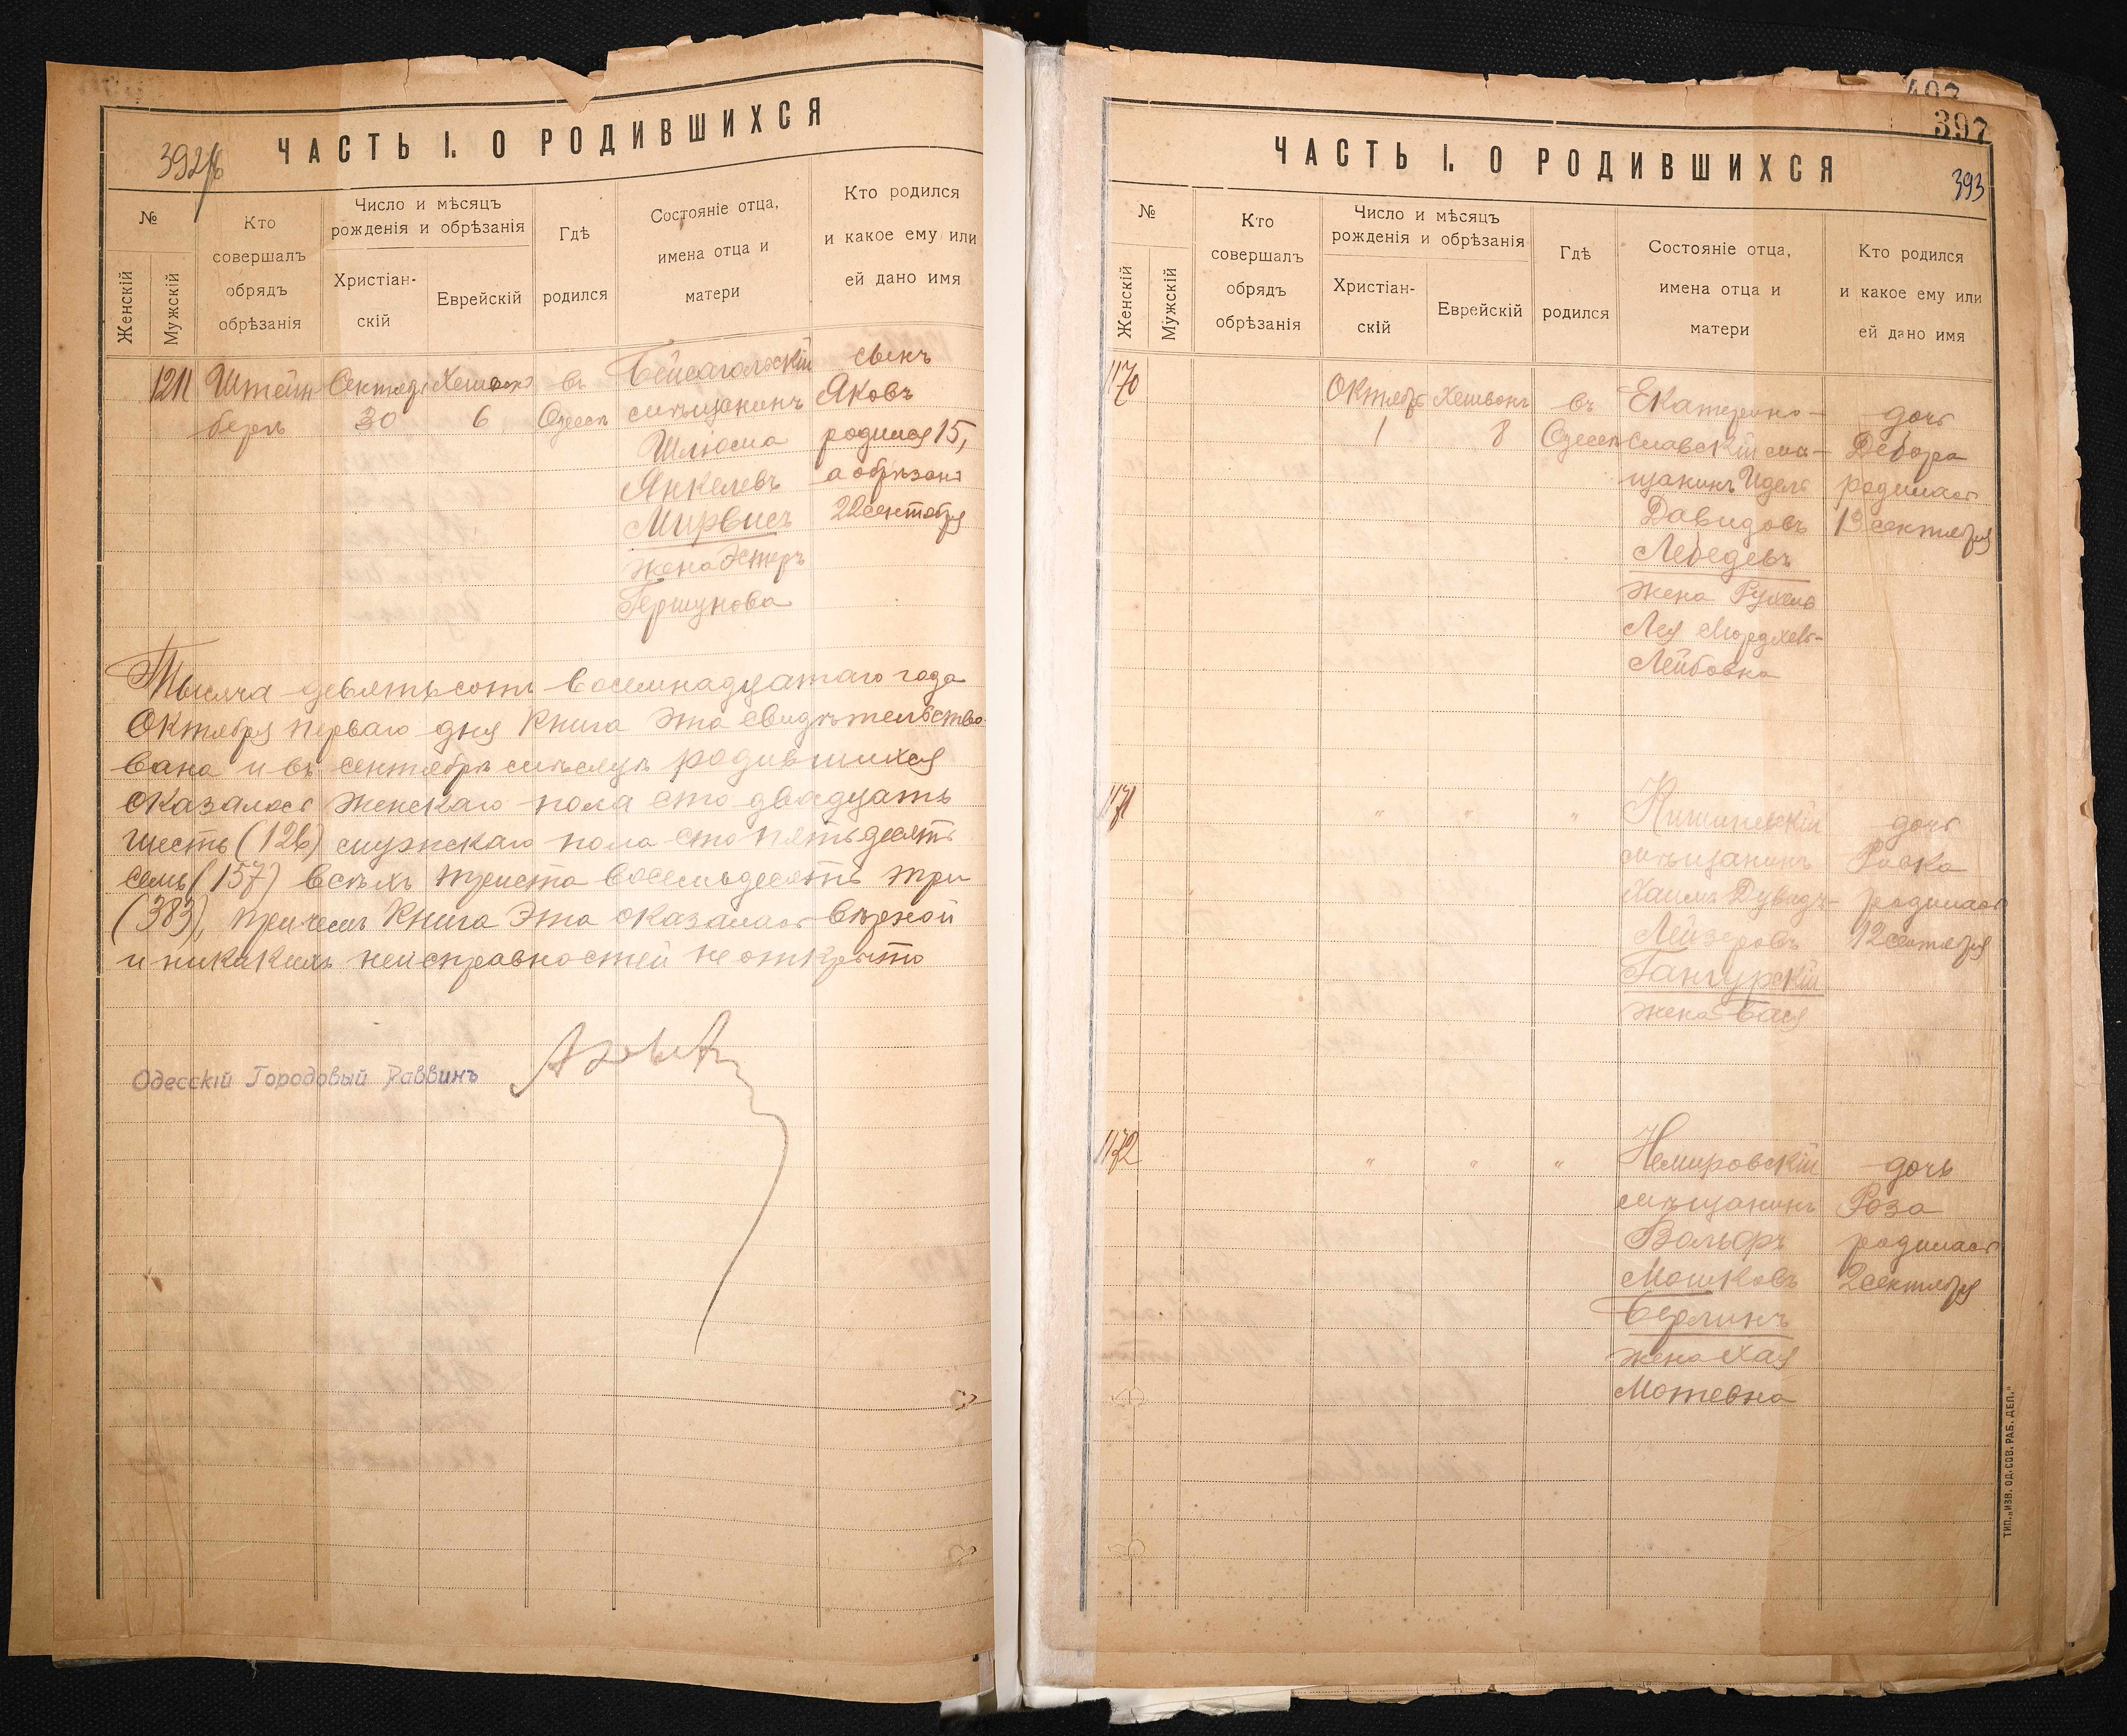 392/б
ЧАСТЬ I. О РОДИВШИХСЯ
№
Женскій
Мужскій
Кто
совершалъ
обрядъ
обрѣзанія
Число и мѣсяцъ
рожденія и обрѣзанія
Христіан-
скій
Еврейскій
Гдѣ
родился
Состояніе отца,
имена отца и
матери
Кто родился
и какое ему или
ей дано имя
1211
Штейн
бергъ
Сентябр
30
Хешвонъ
6
въ
Одессѣ
Бейсагольскій
мѣщанинъ
Шлiома
Янкелевъ
Мирвисъ
жена Эстеръ
Гершунова
сынъ
Яковъ
родился 15,
а обрѣзанъ
22 сентября
Тысяча девятьсотъ восемнадцатаго года
Октября перваго дня Книга эта свидѣтельство-
вана и въ сентябрѣ мѣсяцѣ родившихся
оказалось женскаго пола сто двадцать
шесть (126) мужскаго пола сто пятьдесятъ
семь (157) всѣхъ триста восемьдесятъ три
(383), причемъ Книга Эта оказалась вѣрной
и никакихъ неисправностей не открыто
Одесскій Городовый Раввинъ
407
397
393
ЧАСТЬ I. О РОДИВШИХСЯ
№
Женскій
Мужскій
Кто
совершалъ
обрядъ
обрѣзанія
Число и мѣсяцъ
рожденія и обрѣзанія
Христіан-
скій
Еврейскій
Гдѣ
родился
Состояніе отца,
имена отца и
матери
Кто родился
и какое ему или
ей дано имя
1170
Октябрь
1
Хешвонъ
8
въ
Одессѣ
Екатерино-
славскій мѣ-
щанинъ Идель
Давидовъ
Лебедевъ
жена Рухель
Лея Мордхев-
Лейбовна
дочь
Дебора
родилась
13 сентября
1171
" " "
Кишиневскій
мѣщанинъ
Хаимъ Дувидъ-
Лейзеровъ
Гангурскій
жена Бася
дочь
Ривка
родилась
12 сентября
1172
" " "
Немировскій
мѣщанинъ
Вольфъ
Мошковъ
Берлинъ
жена Хая
Мотевна
дочь
Роза
родилась
2 сентября
ТИП. „ИЗВ. ОД. СОВ. РАБ. ДЕП."